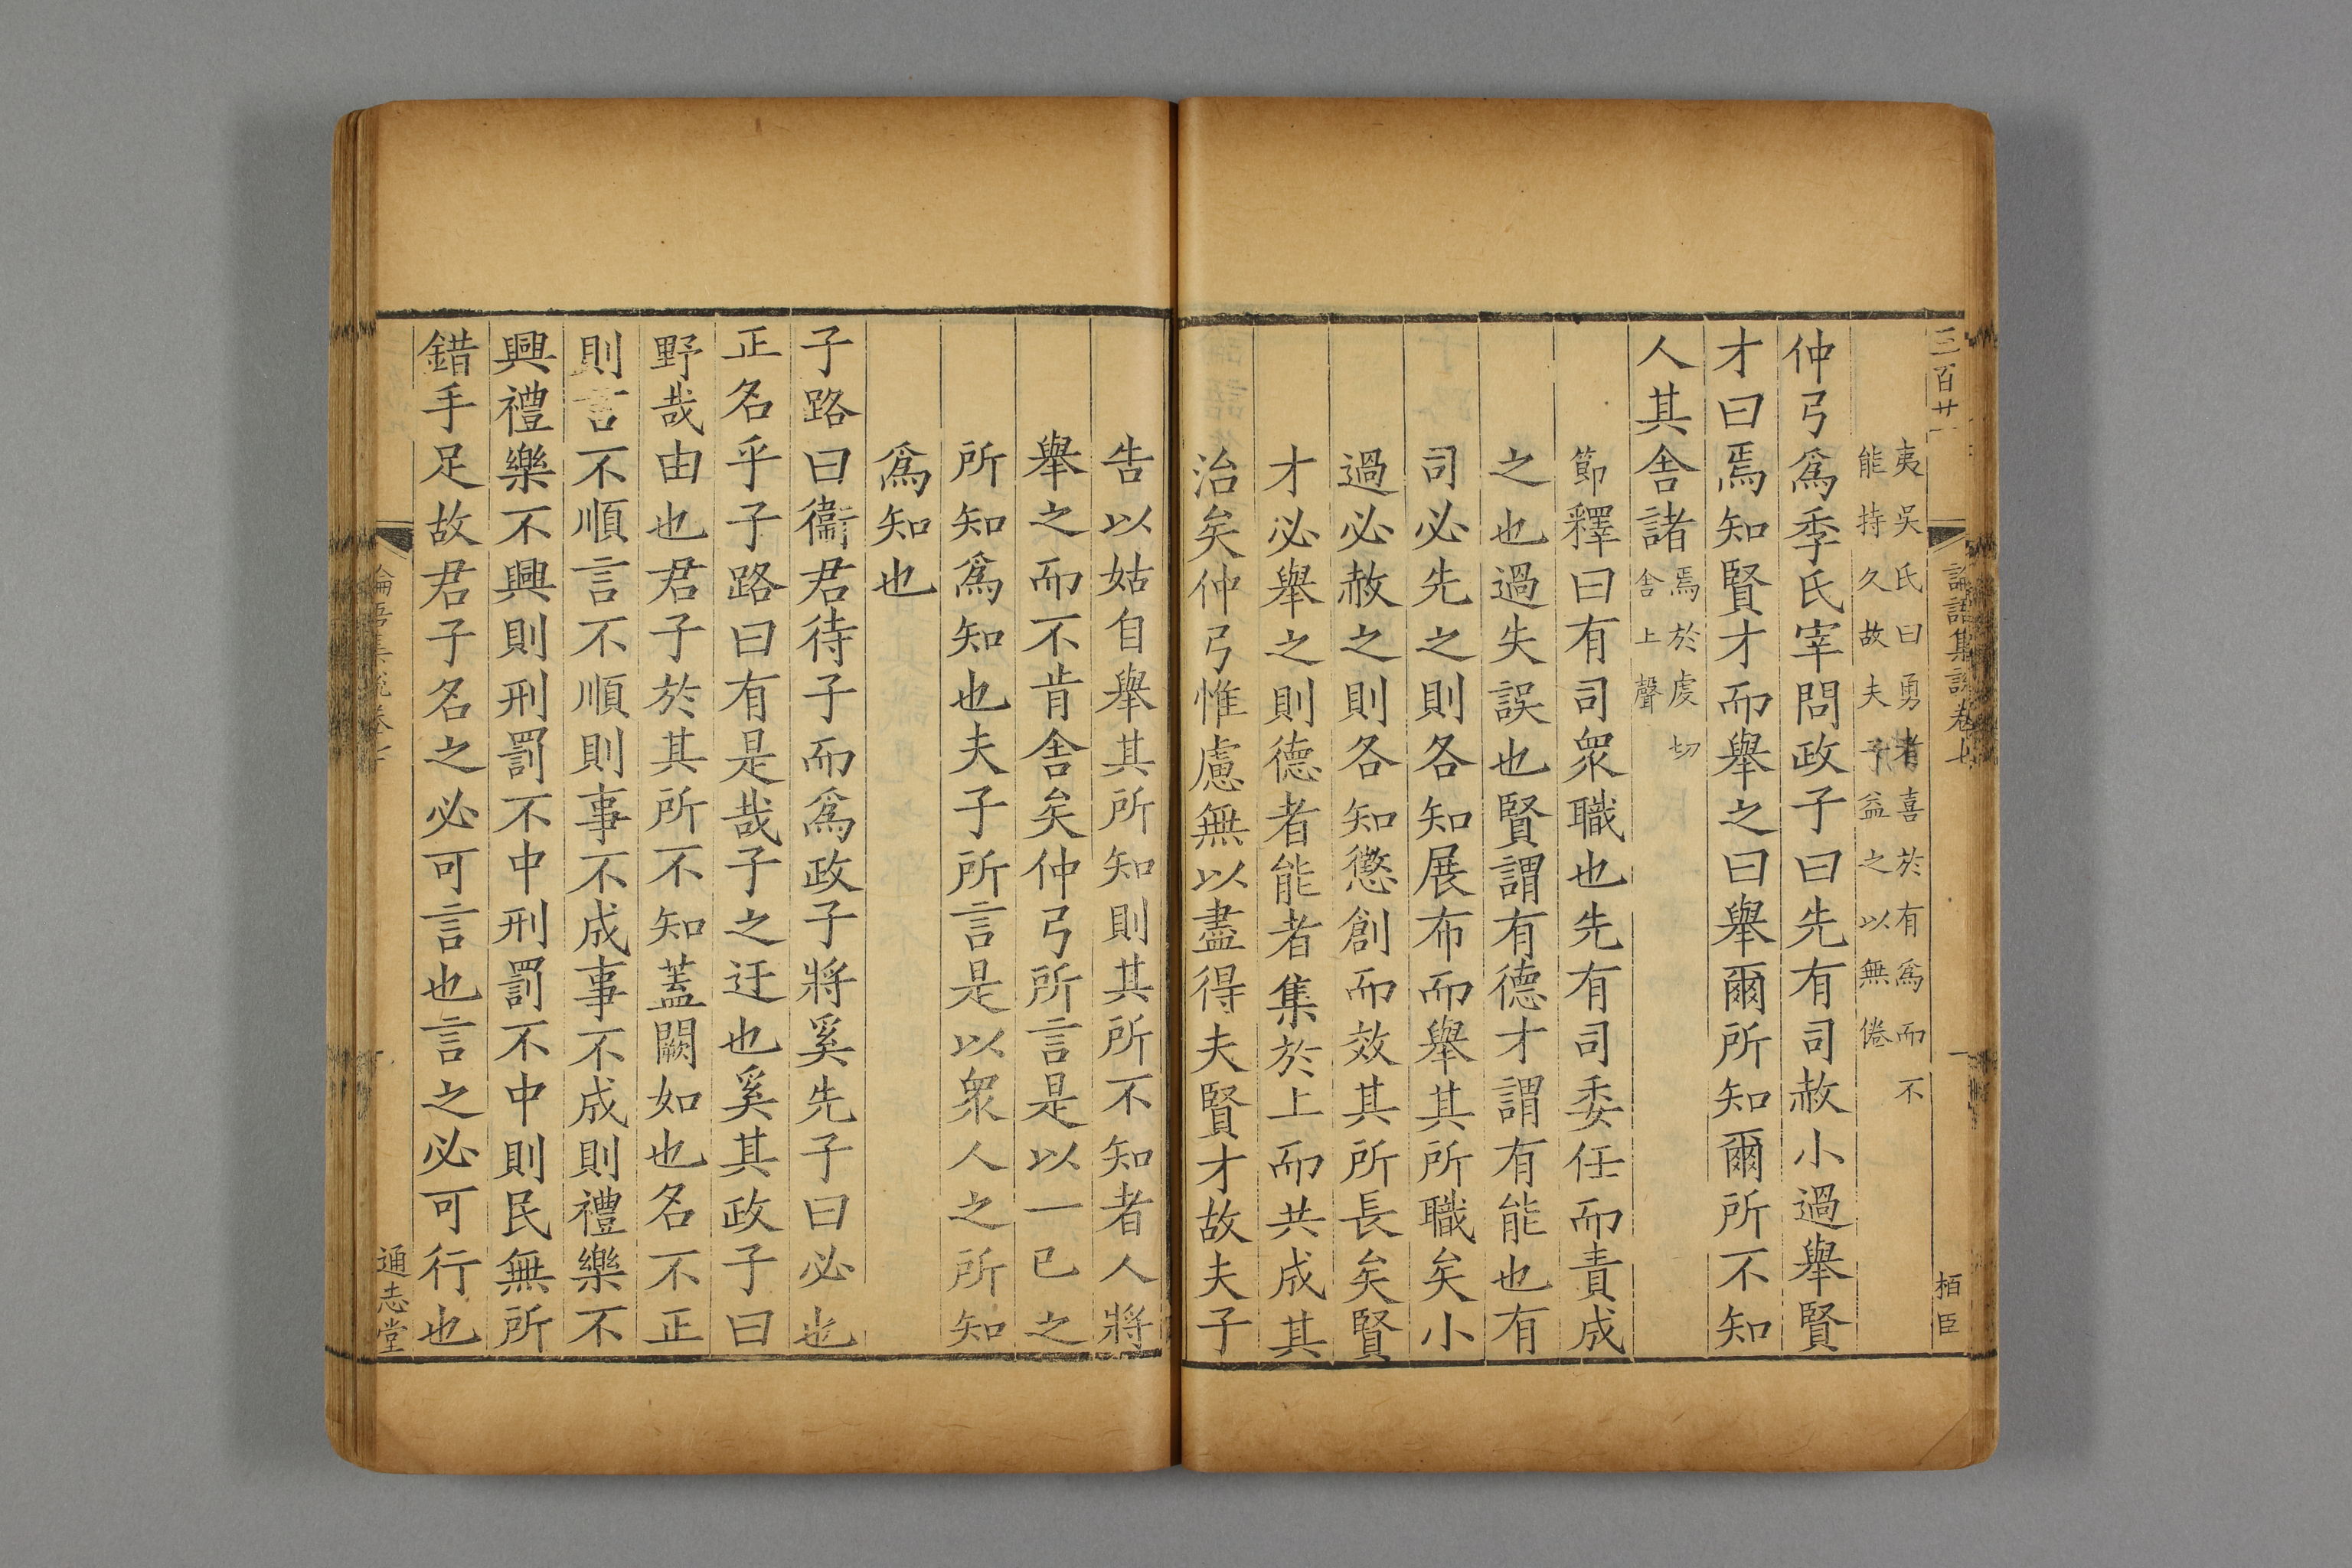 三百廿一
論語集說卷七
一
栢臣
夷吳氏曰勇者喜於有爲而不
能持久故夫子益之以無倦
仲弓爲季氏宰問政子曰先有司赦小過舉賢
才曰焉知賢才而舉之曰舉爾所知爾所不知
人其舍諸
焉於虔切
舍上聲
節釋曰有司衆職也先有司委任而責成
之也過失誤也賢謂有德才謂有能也有
司必先之則各知展布而舉其所職矣小
過必赦之則各知懲創而效其所長矣賢
才必舉之則德者能者集於上而共成其
治矣仲弓惟慮無以盡得夫賢才故夫子
告以姑自舉其所知則其所不知者人將
舉之而不肯舍矣仲弓所言是以一已之
所知爲知也夫子所言是以衆人之所知
爲知也
子路曰衞君待子而爲政子將奚先子曰必也
正名乎子路曰有是哉子之迂也奚其政子曰
野哉由也君子於其所不知蓋闕如也名不正
則言不順言不順則事不成事不成則禮樂不
興禮樂不興則刑罰不中刑罰不中則民無所
錯手足故君子名之必可言也言之必可行也
論語集說卷七
通志堂